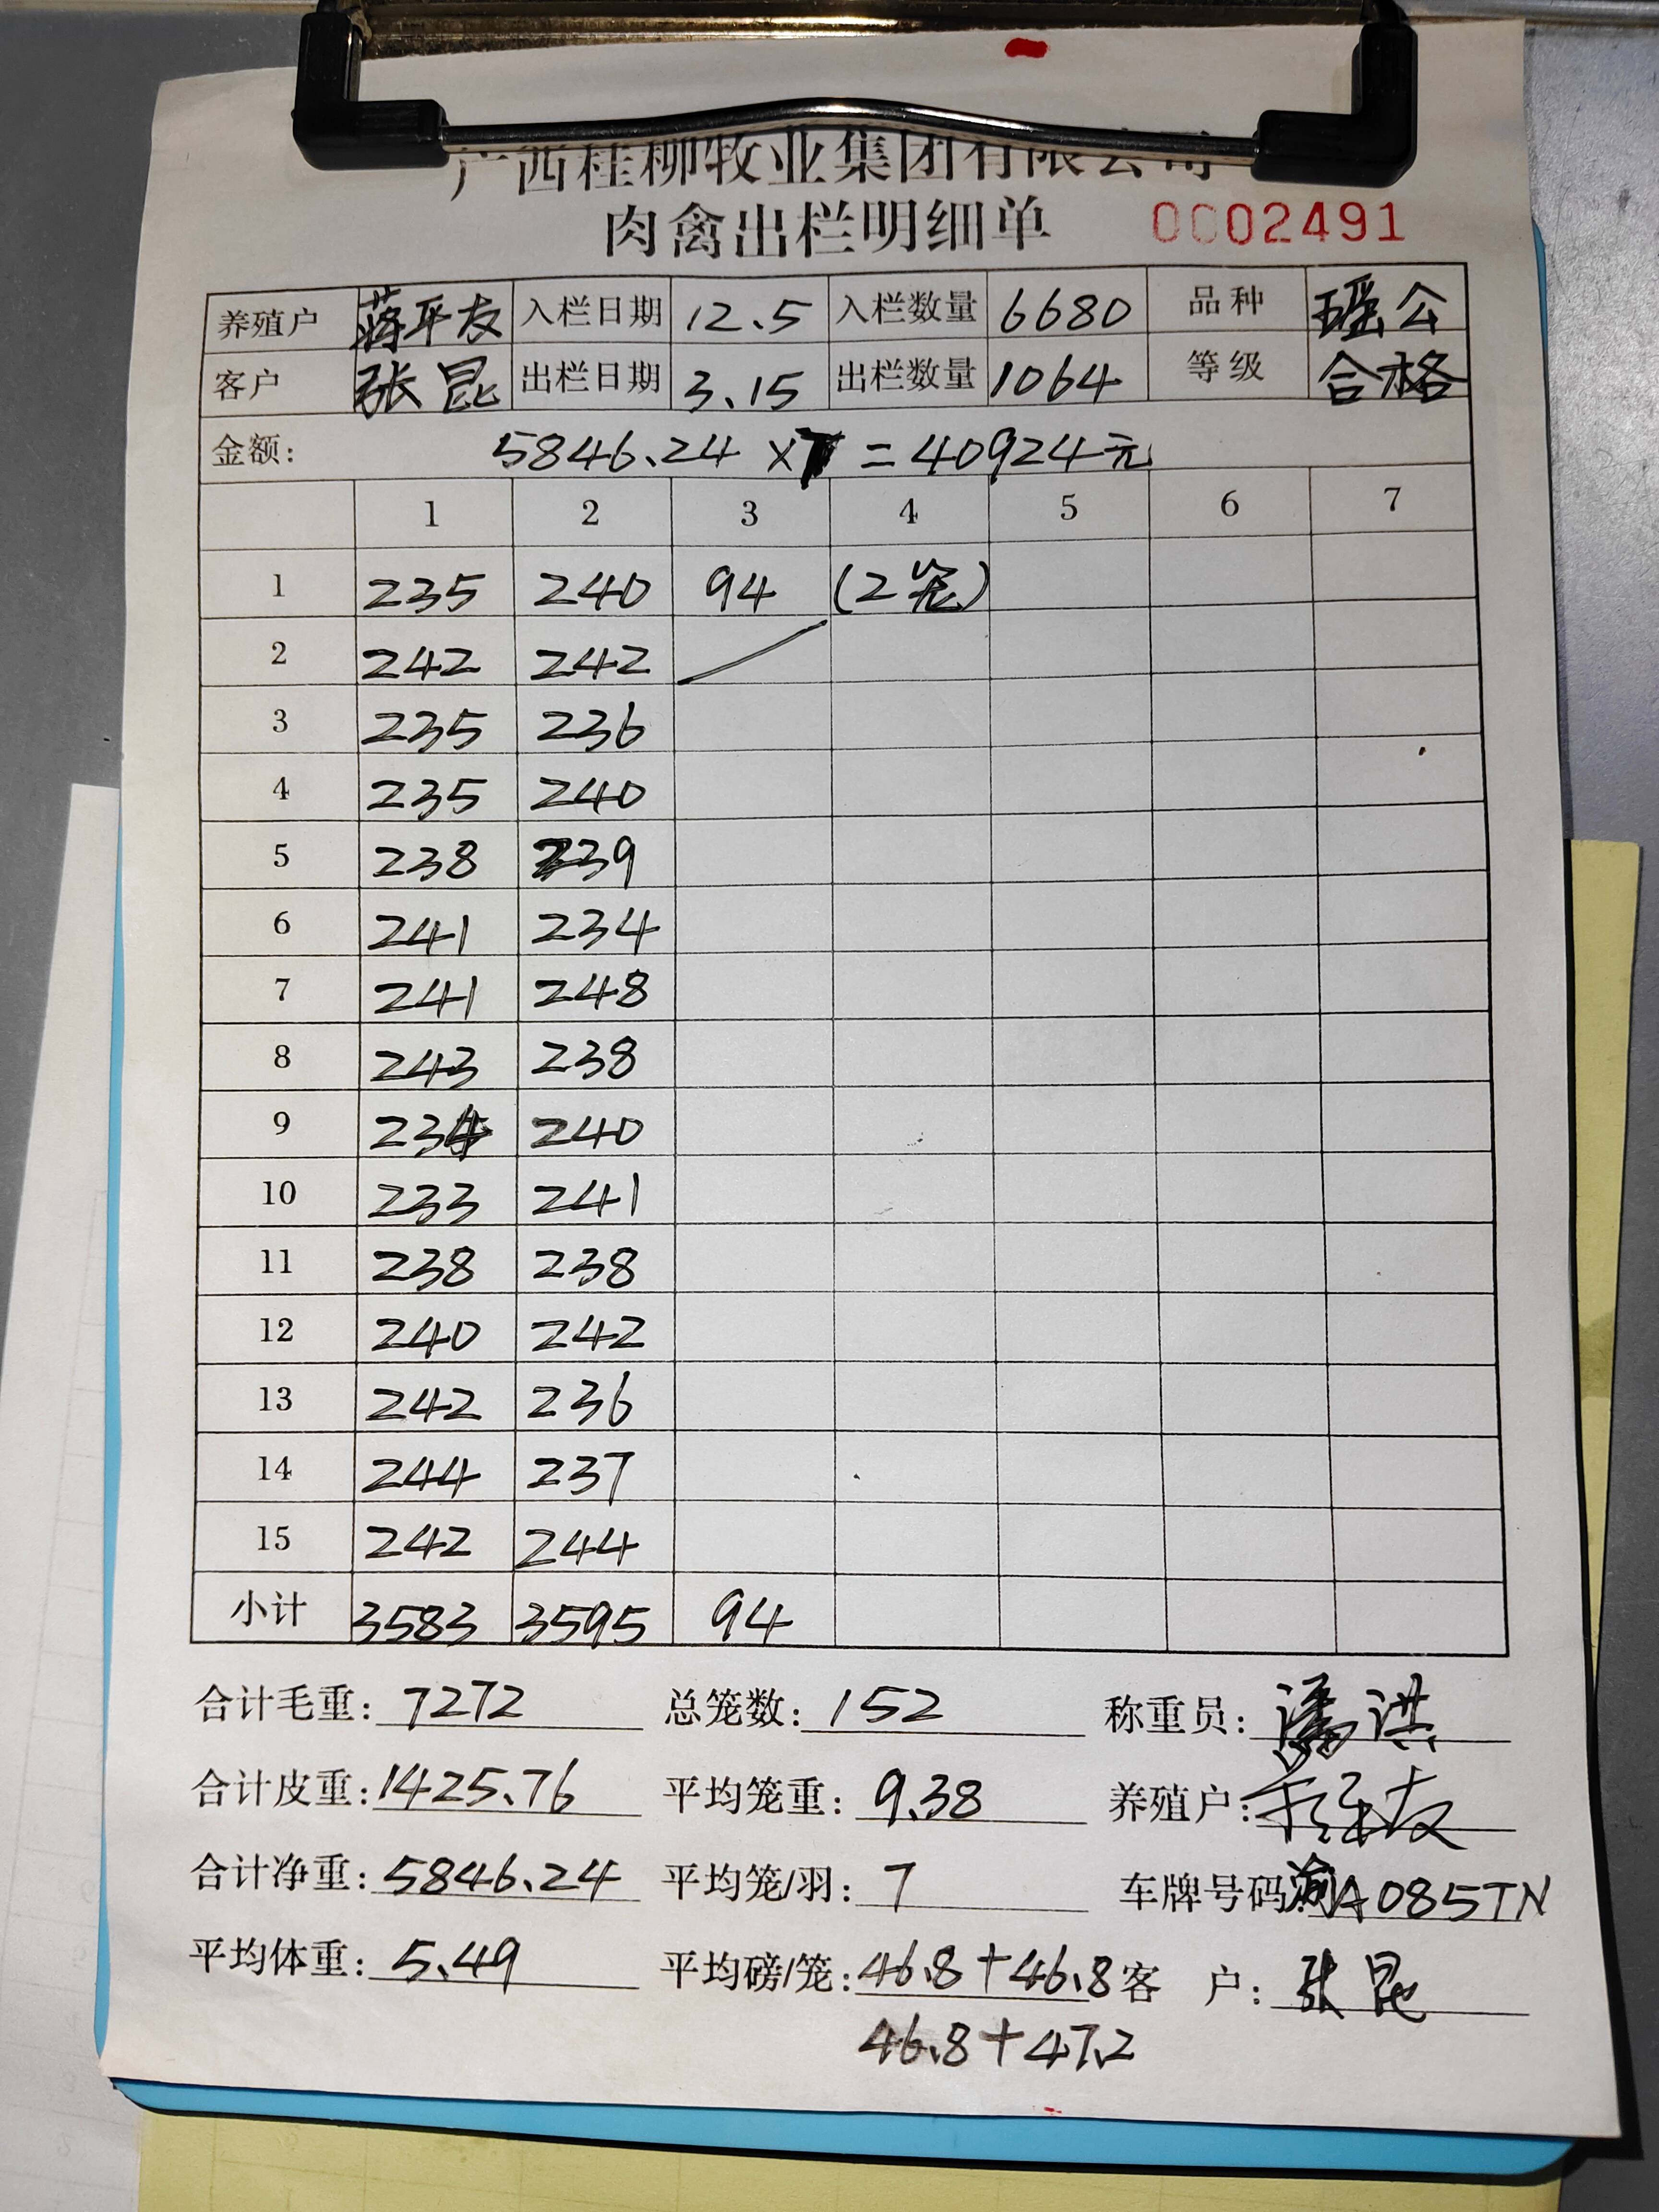 广西桂柳牧业集团有限公司
肉禽出栏明细单 0002491
养殖户 蒋平友 入栏日期 12.5 入栏数量 6680 品种 瑶公
客户 张昆 出栏日期 3.15 出栏数量 1064 等级 合格
金额: 5846.24 ×7 =40924元
1 2 3 4 5 6 7
1 235 240 94 (2笼)
2 242 242
3 235 236
4 235 240
5 238 239
6 241 234
7 241 248
8 243 238
9 234 240
10 233 241
11 238 238
12 240 242
13 242 236
14 244 237
15 242 244
小计 3583 3595 94
合计毛重: 7272 总笼数: 152 称重员: 潘洪
合计皮重: 1425.76 平均笼重: 9.38 养殖户:
合计净重: 5846.24 平均笼/羽: 7 车牌号码 渝A085TN
平均体重: 5.49 平均磅/笼: 46.8+46.8 客户: 张昆
46.8+47.2